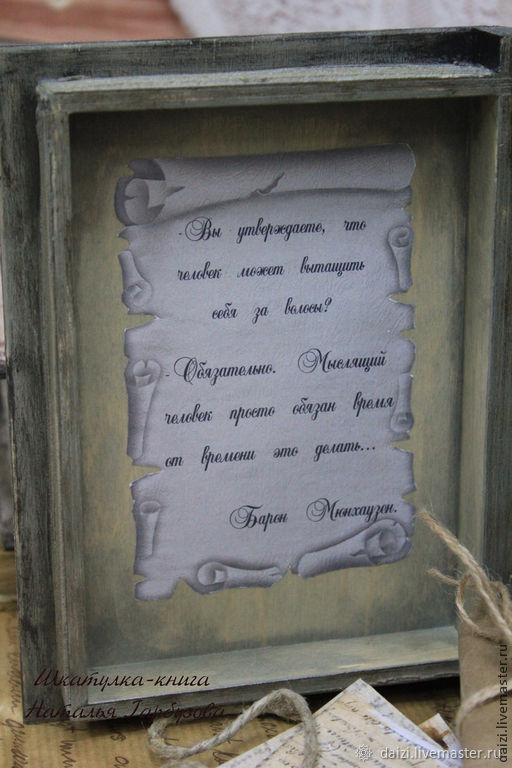 -Вы утверждаете, что
человек может вытащить
себя за волосы?
-Обязательно. Мыслящий
человек просто обязан время
от времени это делать...
Барон Мюнхаузен.
Шкатулка-книга
Наталья Горбунова
daizi.livemaster.ru
daizi.livemaster.ru